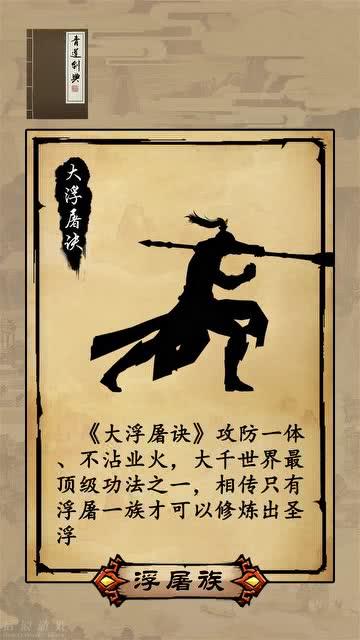 青莲剑典
大浮屠诀
《大浮屠诀》攻防一体
、不沾业火，大千世界最
顶级功法之一，相传只有
浮屠一族才可以修炼出圣
浮
浮屠族